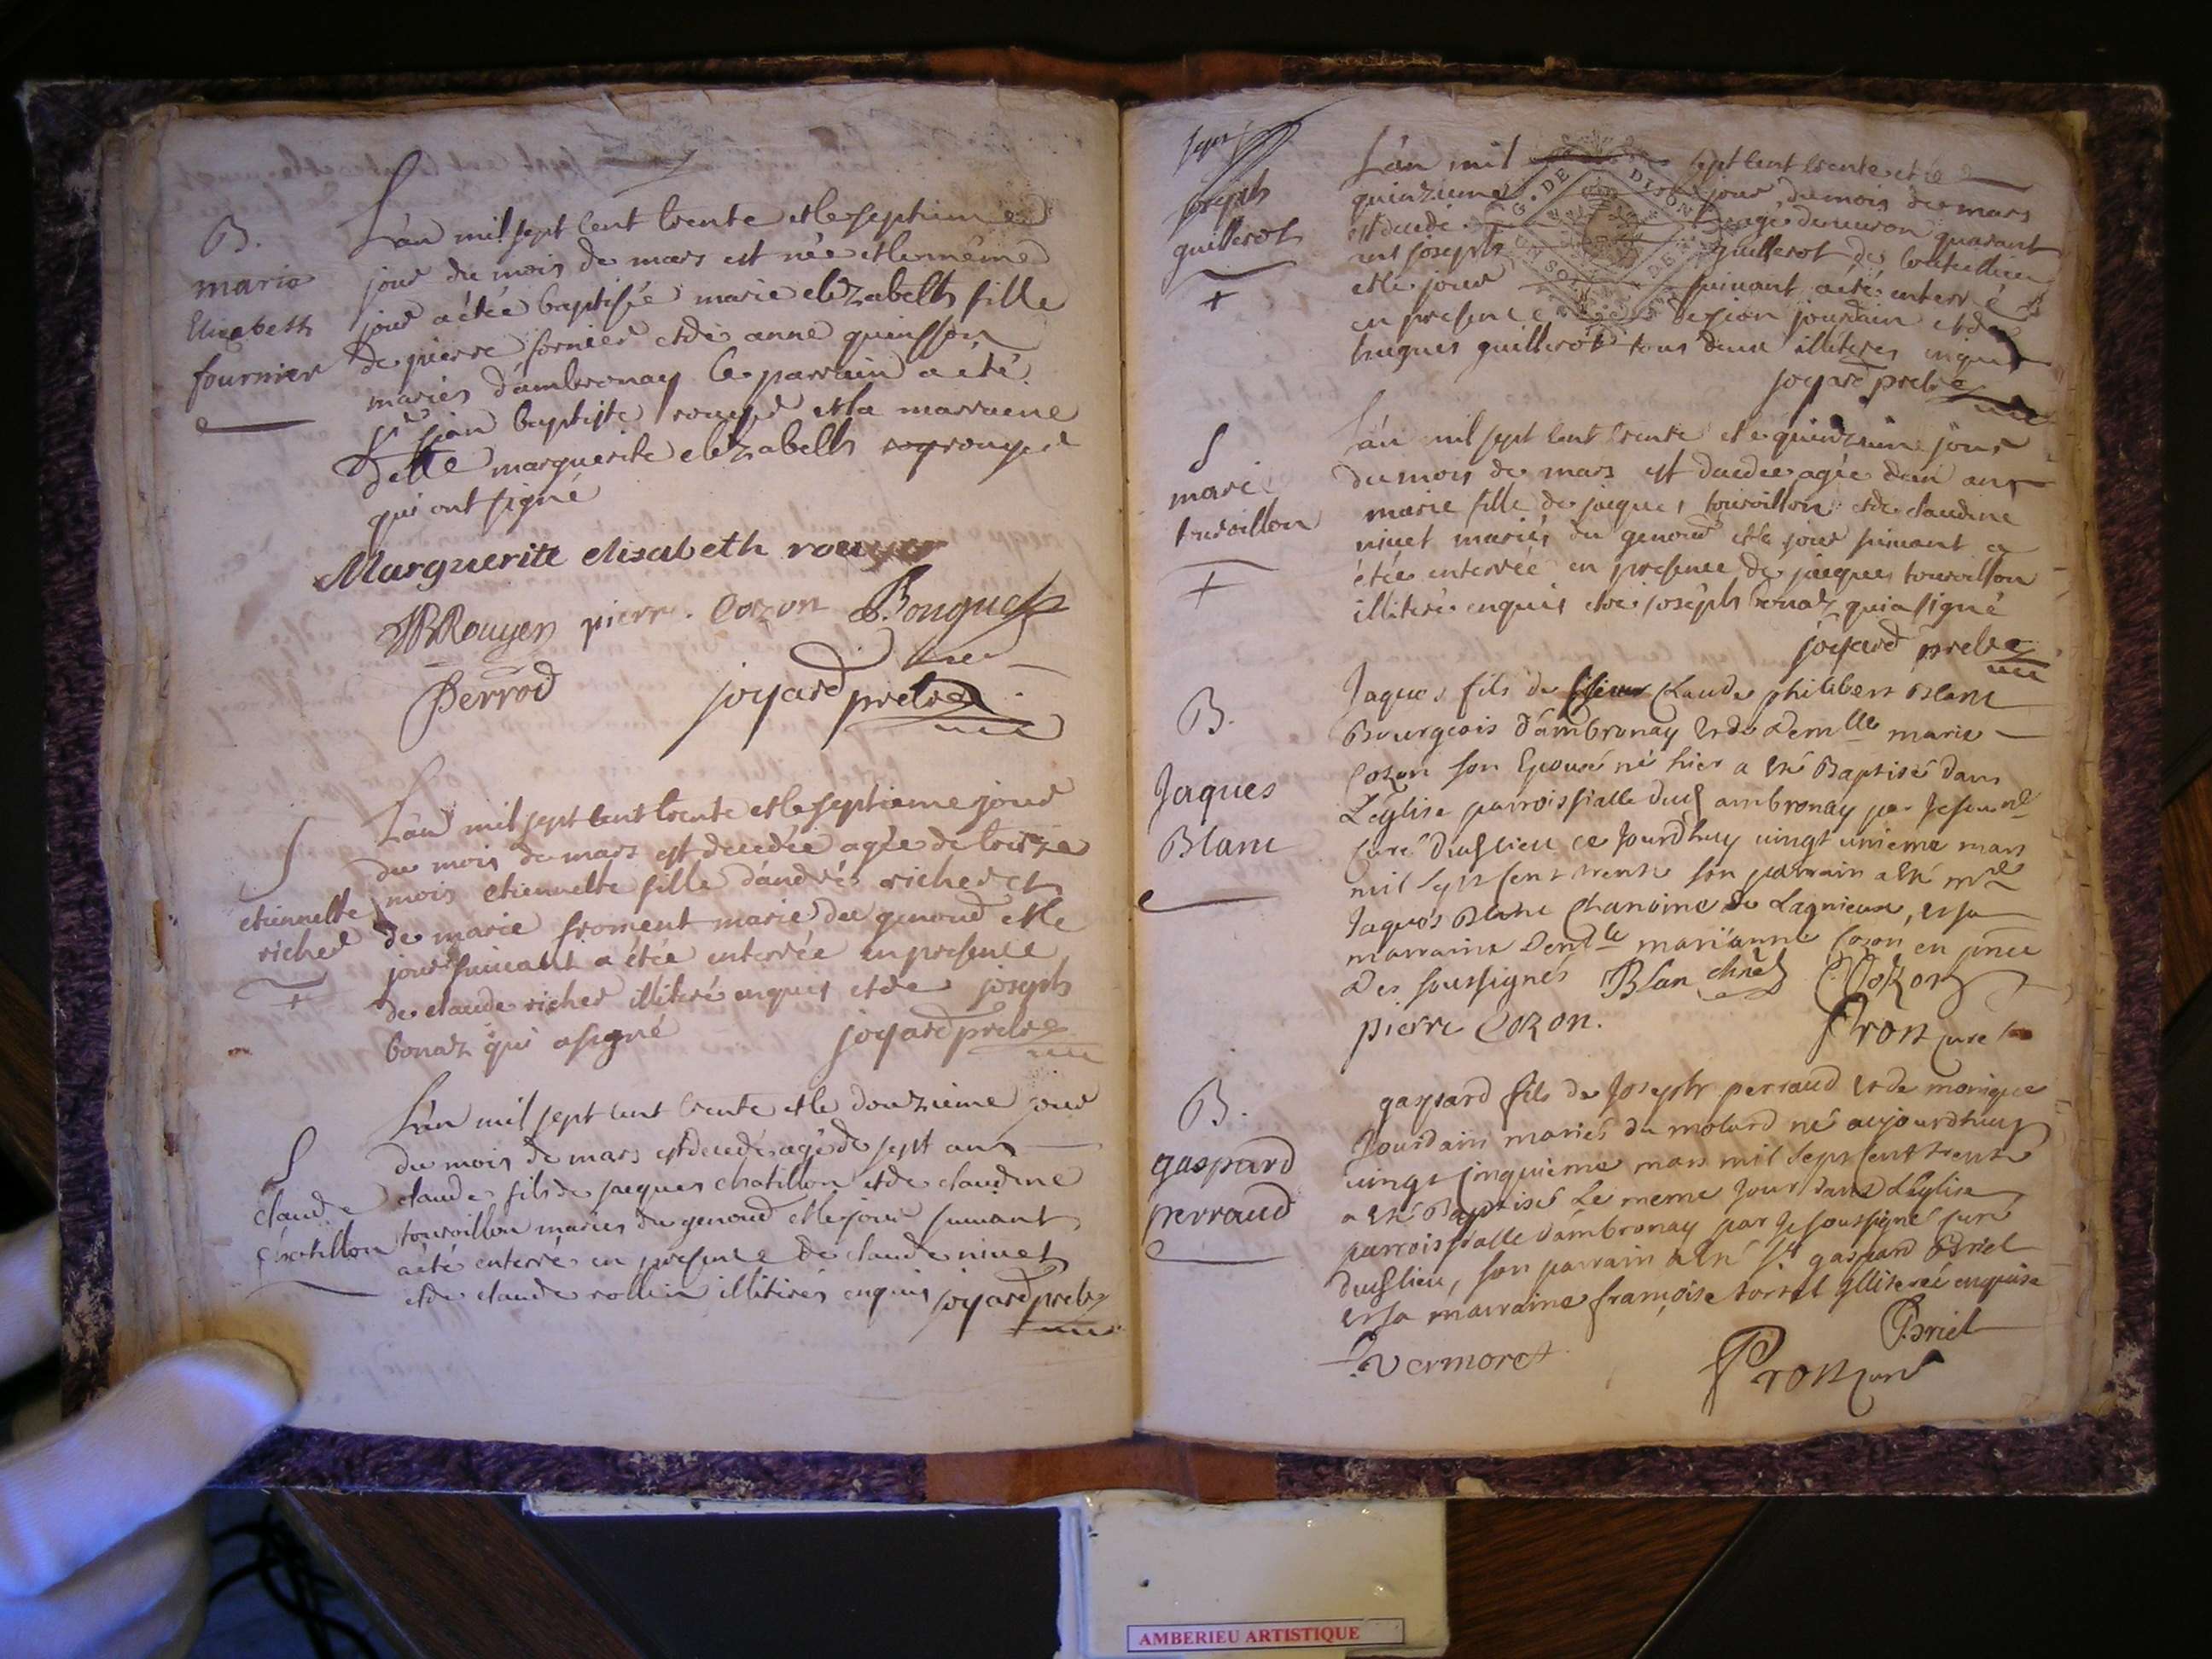 B.
marie
Elizabeth
fournier
L'an mil sept cent trente et le septime
jour du mois de mars est née et le même
jour a étée baptisée marie elizabeth fille
de pierre fornier et de anne quinsson
mariés d'ambronay le parrain a été
Sr jean baptiste rouyer et la marraine
delle marguerite elizabeth rouyer
qui ont signé
Marguerite elisabeth rouyer
JBRouyer pierre. Cozon B. Bouquet
Perrod joyard pretre
S
etiennette
richer
+
L'an mil sept cent trente et le septieme jour
du mois de mars est decedée agée de treize
mois etiennette fille d'andrés richer et
de marie froment mariés du genoud et le
jour suivant a étée enterrée en presence
de claude richer illiteré enquis et de joseph
bonaz qui a signé joyard pretre
S
claude
chatillon
L'an mil sept cent trente et le douzieme jour
du mois de mars est decedé agé de sept ans
claude fils de jacques chatillon et de claudine
tourvillon mariés du genoud et le jour suivant
a été enterré en presence de claude nivet
et de claude rollin illiterés enquis joyard pretre
joseph
guillerot
+
L'an mil sept cent trente et le
quinzieme jour du mois de mars
est decedé agé denviron quarant
ans joseph guillerot de
et le jour suivant a été enterré
en presence de jean jourdain et de
hugues guillerot tous deux illiteres enquis
joyard pretre
G. DE DIJON
S
marie
tourvillon
+
L'an mil sept cent trente et le quinzieme jour
du mois de mars est decedée agée d'un an
marie fille de jacques tourvillon et de claudine
nivet mariés du genoud et le jour suivant a
étée enterrée en presence de jacques tourvillon
illiteré enquis et de joseph bonaz qui a signé
joyard pretre
B.
Jaques
Blanc
Jaques fils de sieur Claude philibert Blanc
Bourgeois d'ambronay et de demlle marie
Cozon son Epouse né hier a été Baptisé dans
L'eglise parroissialle dud ambronay par je soussné
curé dud lieu ce jourd'huy vingt unieme mars
mil sept cent trente son parrain a été mre
Jaques Blanc Chanoine de Lagnieux, et sa
marraine demlle marianne Cozon en pnce
des soussignés Blanc chne Cozon
pierre Cozon. Pron curé
B.
gaspard
perraud
gaspard fils de Joseph perraud et de monique
Jourdain mariés du molard né aujourdhuy
vingt cinquieme mars mil sept cent trente
a été Baptisé Le meme Jour dans L'eglise
parroissialle d'ambronay par je soussigné curé
dud lieu, son parrain a été Sr gaspard Briel
et sa marraine françoise tortel illiterée enquise
Briel
vermoret Pron curé
AMBERIEU ARTISTIQUE